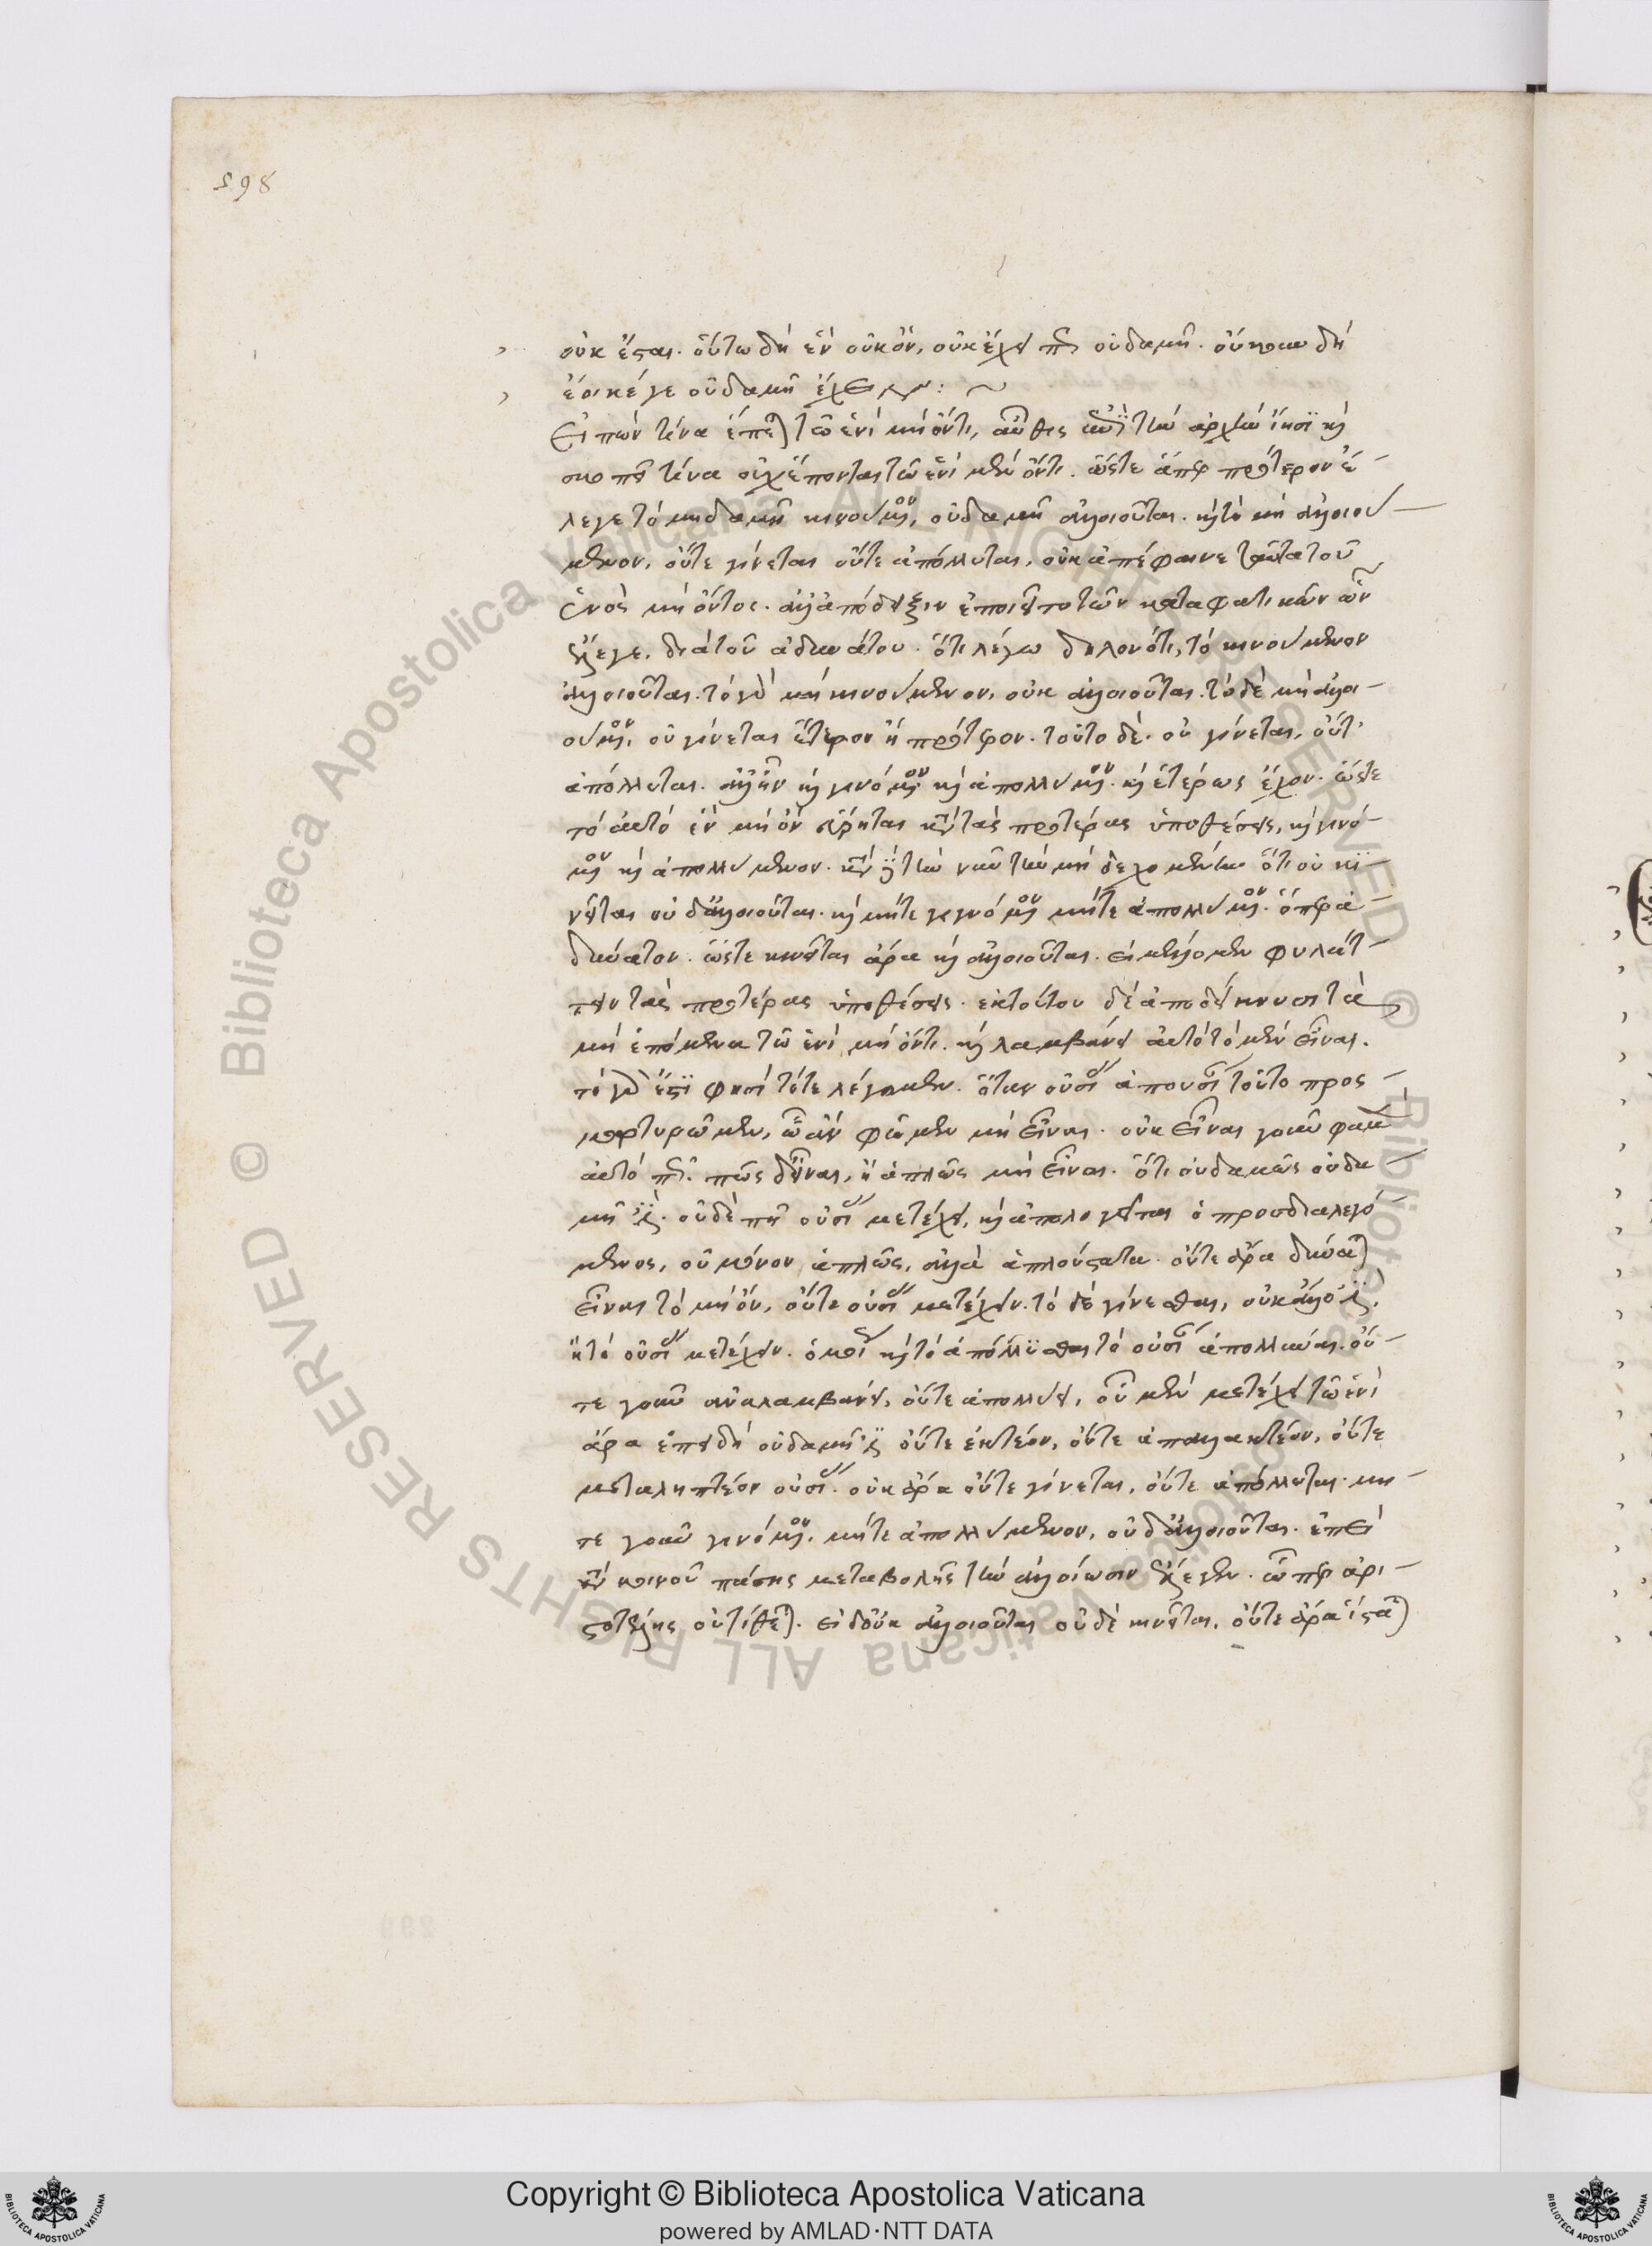 598
οὐκ ἔσται. οὕτω δὴ ἓν οὐκ ὂν, οὐκ ἔχει πῃ οὐδαμῇ. οὔκουν δὴ
ἔοικέ γε οὐδαμῇ ἔχειν:~
Εἰπὼν τίνα ἕπεται τῷ ἑνὶ μὴ ὄντι, αὖθις ἐπὶ τὴν ἀρχὴν ἴησι καὶ
σκοπεῖ τίνα οὐχ ἕπονται τῷ ἑνὶ μὴ ὄντι. ὥστε ἅπερ πρότερον ἔ-
λεγε τὸ μηδαμῇ κινούμενον, οὐδαμῇ ἀλλοιοῦται. καὶ τὸ μὴ ἀλλοιού-
μενον, οὔτε γίνεται οὔτε ἀπόλλυται, οὐκ ἀπέφαινε ταῦτα τοῦ
ἑνὸς μὴ ὄντος. ἀλλ' ἀπόδειξιν ἐποιεῖτο τῶν καταφατικῶν ὧν
ἔλεγε, διὰ τοῦ ἀδυνάτου. ὅτι λέγω δηλονότι, τὸ κινούμενον
ἀλλοιοῦται. τὸ γὰρ μὴ κινούμενον, οὐκ ἀλλοιοῦται. τὸ δὲ μὴ ἀλλοι-
ούμενον, οὐ γίνεται ἕτερον ἢ πρότερον. τοῦτο δὲ. οὐ γίνεται, οὔτ'
ἀπόλλυται. ἀλλ' ἦν καὶ γινόμενον καὶ ἀπολλύμενον. καὶ ἑτέρως ἔχον. ὥστε
τὸ αὐτὸ ἓν μὴ ὂν εἴρηται κατὰ τὰς προτέρας ὑποθέσεις, καὶ γινό-
μενον καὶ ἀπολλύμενον. κατὰ τὴν νῦν τὴν μὴ δεχομένην ὅτι οὐ κι-
νεῖται οὐδ' ἀλλοιοῦται. καὶ μήτε γιγνόμενον μήτε ἀπολλύμενον. ὅπερ ἀ-
δύνατον. ὥστε κινεῖται ἄρα καὶ ἀλλοιοῦται. εἰ μέλλομεν φυλάτ-
τειν τὰς προτέρας ὑποθέσεις. ἐκ τούτου δὲ ἀποδείκνυσι τὰ
μὴ ἑπόμενα τῷ ἑνὶ μὴ ὄντι. καὶ λαμβάνει αὐτὸ τὸ μὴ εἶναι.
τὸ γὰρ ἔστι φησὶ τότε λέγομεν. ὅταν οὐσίας ἀπουσίαν τούτῳ προσ-
μαρτυρῶμεν, ᾧ ἂν φῶμεν μὴ εἶναι. οὐκ εἶναι γοῦν φαμὲν
αὐτό πῃ. πῶς δ' εἶναι, ἢ ἁπλῶς μὴ εἶναι. ὅτι οὐδαμῶς οὐδα-
μῇ ἐστὶ. οὐδέ πῃ οὐσίας μετέχει, καὶ ἀπολογεῖται ὁ προσδιαλεγό-
μενος, οὐ μόνον ἁπλῶς, ἀλλὰ ἁπλούστατα. οὔτε ἄρα δύναται
εἶναι τὸ μὴ ὄν, οὔτε οὐσίας μετέχειν. τὸ δὲ γίνεσθαι, οὐκ ἄλλό ἐστιν,
ἢ τὸ οὐσίας μετέχειν. ὁμοίως καὶ τὸ ἀπόλλυσθαι τὸ οὐσίαν ἀπολλύναι. οὔ-
τε γοῦν ἀναλαμβάνει, οὔτε ἀπολλύει, οὗ μὴ μετέχει τῷ ἑνὶ
ἄρα ἐπειδὴ οὐδαμῇ ἐστι οὔτε ἑκτέον, οὔτε ἀπαλλακτέον, οὔτε
μεταληπτέον οὐσίας. οὐκ ἄρα οὔτε γίνεται, οὔτε ἀπόλλυται. μή-
τε γοῦν γινόμενον, μήτε ἀπολλύμενον, οὐδ' ἀλλοιοῦται. ἐπεὶ
κοινοῦ πάσης μεταβολῆς τὴν ἀλλοίωσιν ἔλεγεν. ὥσπερ ἀρι-
στοτέλης οὐ τίθεται. εἰ δ' οὐκ ἀλλοιοῦται οὐδὲ κινεῖται, οὔτε ἄρα ἵσταται